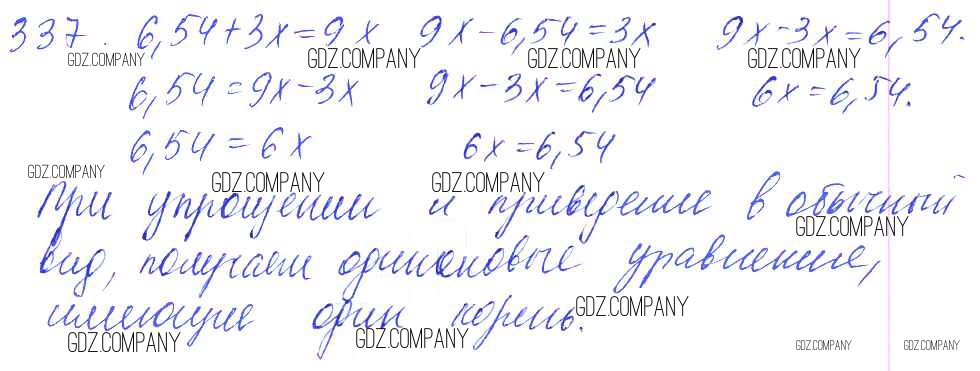 337. 6,54+3x=9x 9x-6,54=3x 9x-3x=6,54.
6,54=9x-3x 9x-3x=6,54 6x=6,54.
6,54=6x 6x=6,54
При упрощении и приведение в обычный
вид, получаем одинаковые уравнение,
имеющие один корень.
GDZ.COMPANY GDZ.COMPANY GDZ.COMPANY GDZ.COMPANY
GDZ.COMPANY GDZ.COMPANY GDZ.COMPANY
GDZ.COMPANY
GDZ.COMPANY
GDZ.COMPANY GDZ.COMPANY GDZ.COMPANY GDZ.COMPANY